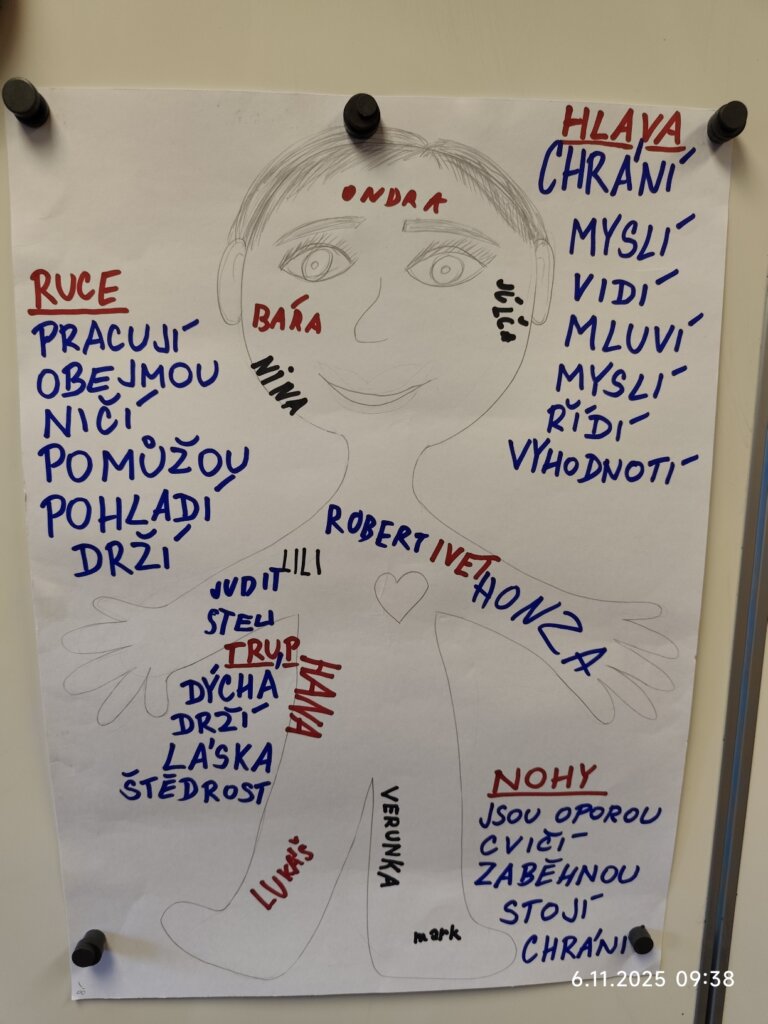 HLAVA
CHRÁNÍ
MYSLÍ
VIDÍ
MLUVÍ
MYSLÍ
ŘÍDÍ
VYHODNOTÍ
ONDRA
BÁRA
NINA
JÚLIA
RUCE
PRACUJÍ
OBEJMOU
NIČÍ
POMŮŽOU
POHLADÍ
DRŽÍ
ROBERT
IVET
HONZA
LILI
JUDIT
TRUP
DÝCHÁ
DRŽÍ
LÁSKA
ŠTĚDROST
HANA
LUKÁŠ
VERUNKA
mark
NOHY
JSOU OPOROU
CVIČÍ
ZABĚHNOU
STOJÍ
CHRÁNÍ
6.11.2025 09:38